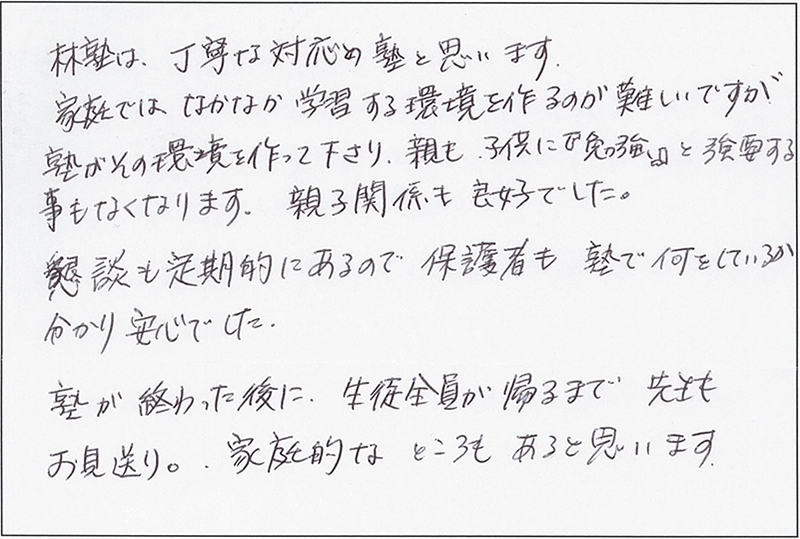 林塾は、丁寧な対応の塾と思います.
家庭では なかなか 学習する環境を作るのが 難しいですが
塾がその環境を作って下さり、親も 子供に『勉強』と強要する
事もなくなります。 親子関係も 良好でした。
懇談も定期的にあるので 保護者も 塾で何をしているか
分かり安心でした.
塾が 終わった後に、生徒全員が 帰るまで 先生も
お見送り。. 家庭的な ところも あると思います.